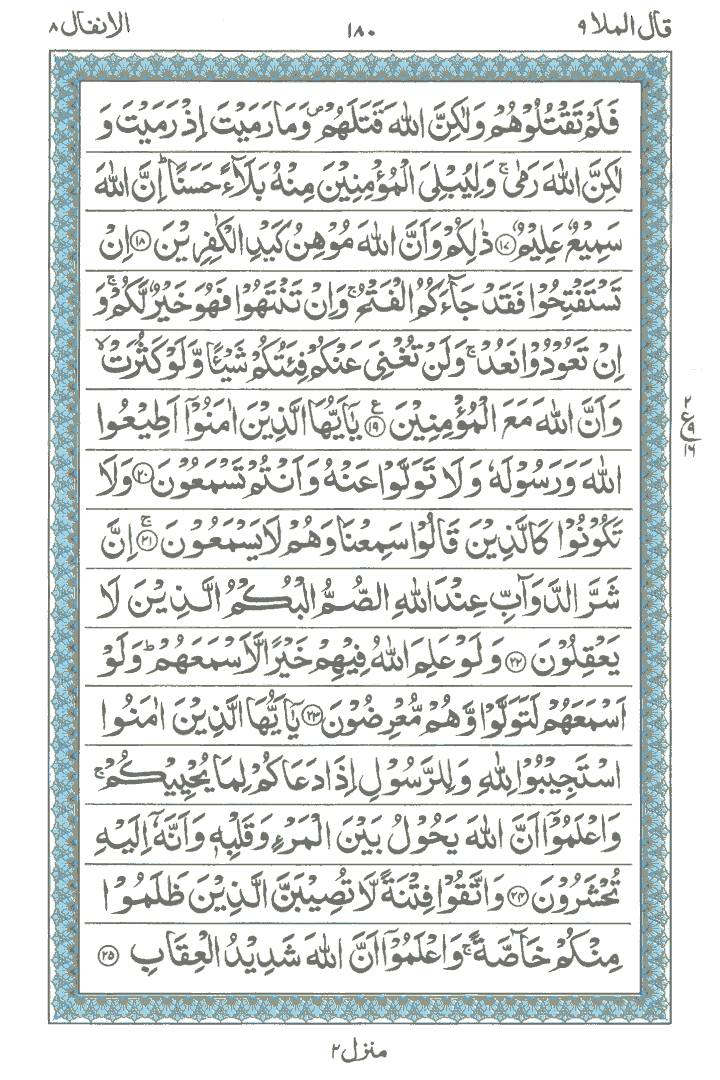 قال الملا ٩ ١٨٠ الانفال ٨
فَلَمْ تَقْتُلُوْهُمْ وَلٰكِنَّ اللّٰهَ قَتَلَهُمْ ۪ وَمَا رَمَيْتَ اِذْ رَمَيْتَ وَ
لٰكِنَّ اللّٰهَ رَمٰى ۚ وَلِيُبْلِىَ الْمُؤْمِنِيْنَ مِنْهُ بَلَآءً حَسَنًا ؕ اِنَّ اللّٰهَ
سَمِيْعٌ عَلِيْمٌ ۝١٧ ذٰلِكُمْ وَاَنَّ اللّٰهَ مُوْهِنُ كَيْدِ الْكٰفِرِيْنَ ۝١٨ اِنْ
تَسْتَفْتِحُوْا فَقَدْ جَآءَكُمُ الْفَتْحُ ۚ وَاِنْ تَنْتَهُوْا فَهُوَ خَيْرٌ لَّكُمْ ۚ وَ
اِنْ تَعُوْدُوْا نَعُدْ ۚ وَلَنْ تُغْنِىَ عَنْكُمْ فِئَتُكُمْ شَيْـًٔا وَّلَوْ كَثُرَتْ ۙ
وَاَنَّ اللّٰهَ مَعَ الْمُؤْمِنِيْنَ ۝١٩ ع يٰۤاَيُّهَا الَّذِيْنَ اٰمَنُوْۤا اَطِيْعُوا
٢
ع ٩
١٦
اللّٰهَ وَرَسُوْلَهٗ وَلَا تَوَلَّوْا عَنْهُ وَاَنْتُمْ تَسْمَعُوْنَ ۝٢٠ وَلَا
تَكُوْنُوْا كَالَّذِيْنَ قَالُوْا سَمِعْنَا وَهُمْ لَا يَسْمَعُوْنَ ۝٢١ ۚ اِنَّ
شَرَّ الدَّوَآبِّ عِنْدَ اللّٰهِ الصُّمُّ الْبُكْمُ الَّذِيْنَ لَا
يَعْقِلُوْنَ ۝٢٢ وَلَوْ عَلِمَ اللّٰهُ فِيْهِمْ خَيْرًا لَّاَسْمَعَهُمْ ؕ وَلَوْ
اَسْمَعَهُمْ لَتَوَلَّوْا وَّهُمْ مُّعْرِضُوْنَ ۝٢٣ يٰۤاَيُّهَا الَّذِيْنَ اٰمَنُوا
اسْتَجِيْبُوْا لِلّٰهِ وَلِلرَّسُوْلِ اِذَا دَعَاكُمْ لِمَا يُحْيِيْكُمْ ۚ
وَاعْلَمُوْۤا اَنَّ اللّٰهَ يَحُوْلُ بَيْنَ الْمَرْءِ وَقَلْبِهٖ وَاَنَّهٗۤ اِلَيْهِ
تُحْشَرُوْنَ ۝٢٤ وَاتَّقُوْا فِتْنَةً لَّا تُصِيْبَنَّ الَّذِيْنَ ظَلَمُوْا
مِنْكُمْ خَآصَّةً ۚ وَاعْلَمُوْۤا اَنَّ اللّٰهَ شَدِيْدُ الْعِقَابِ ۝٢٥
منزل ٢